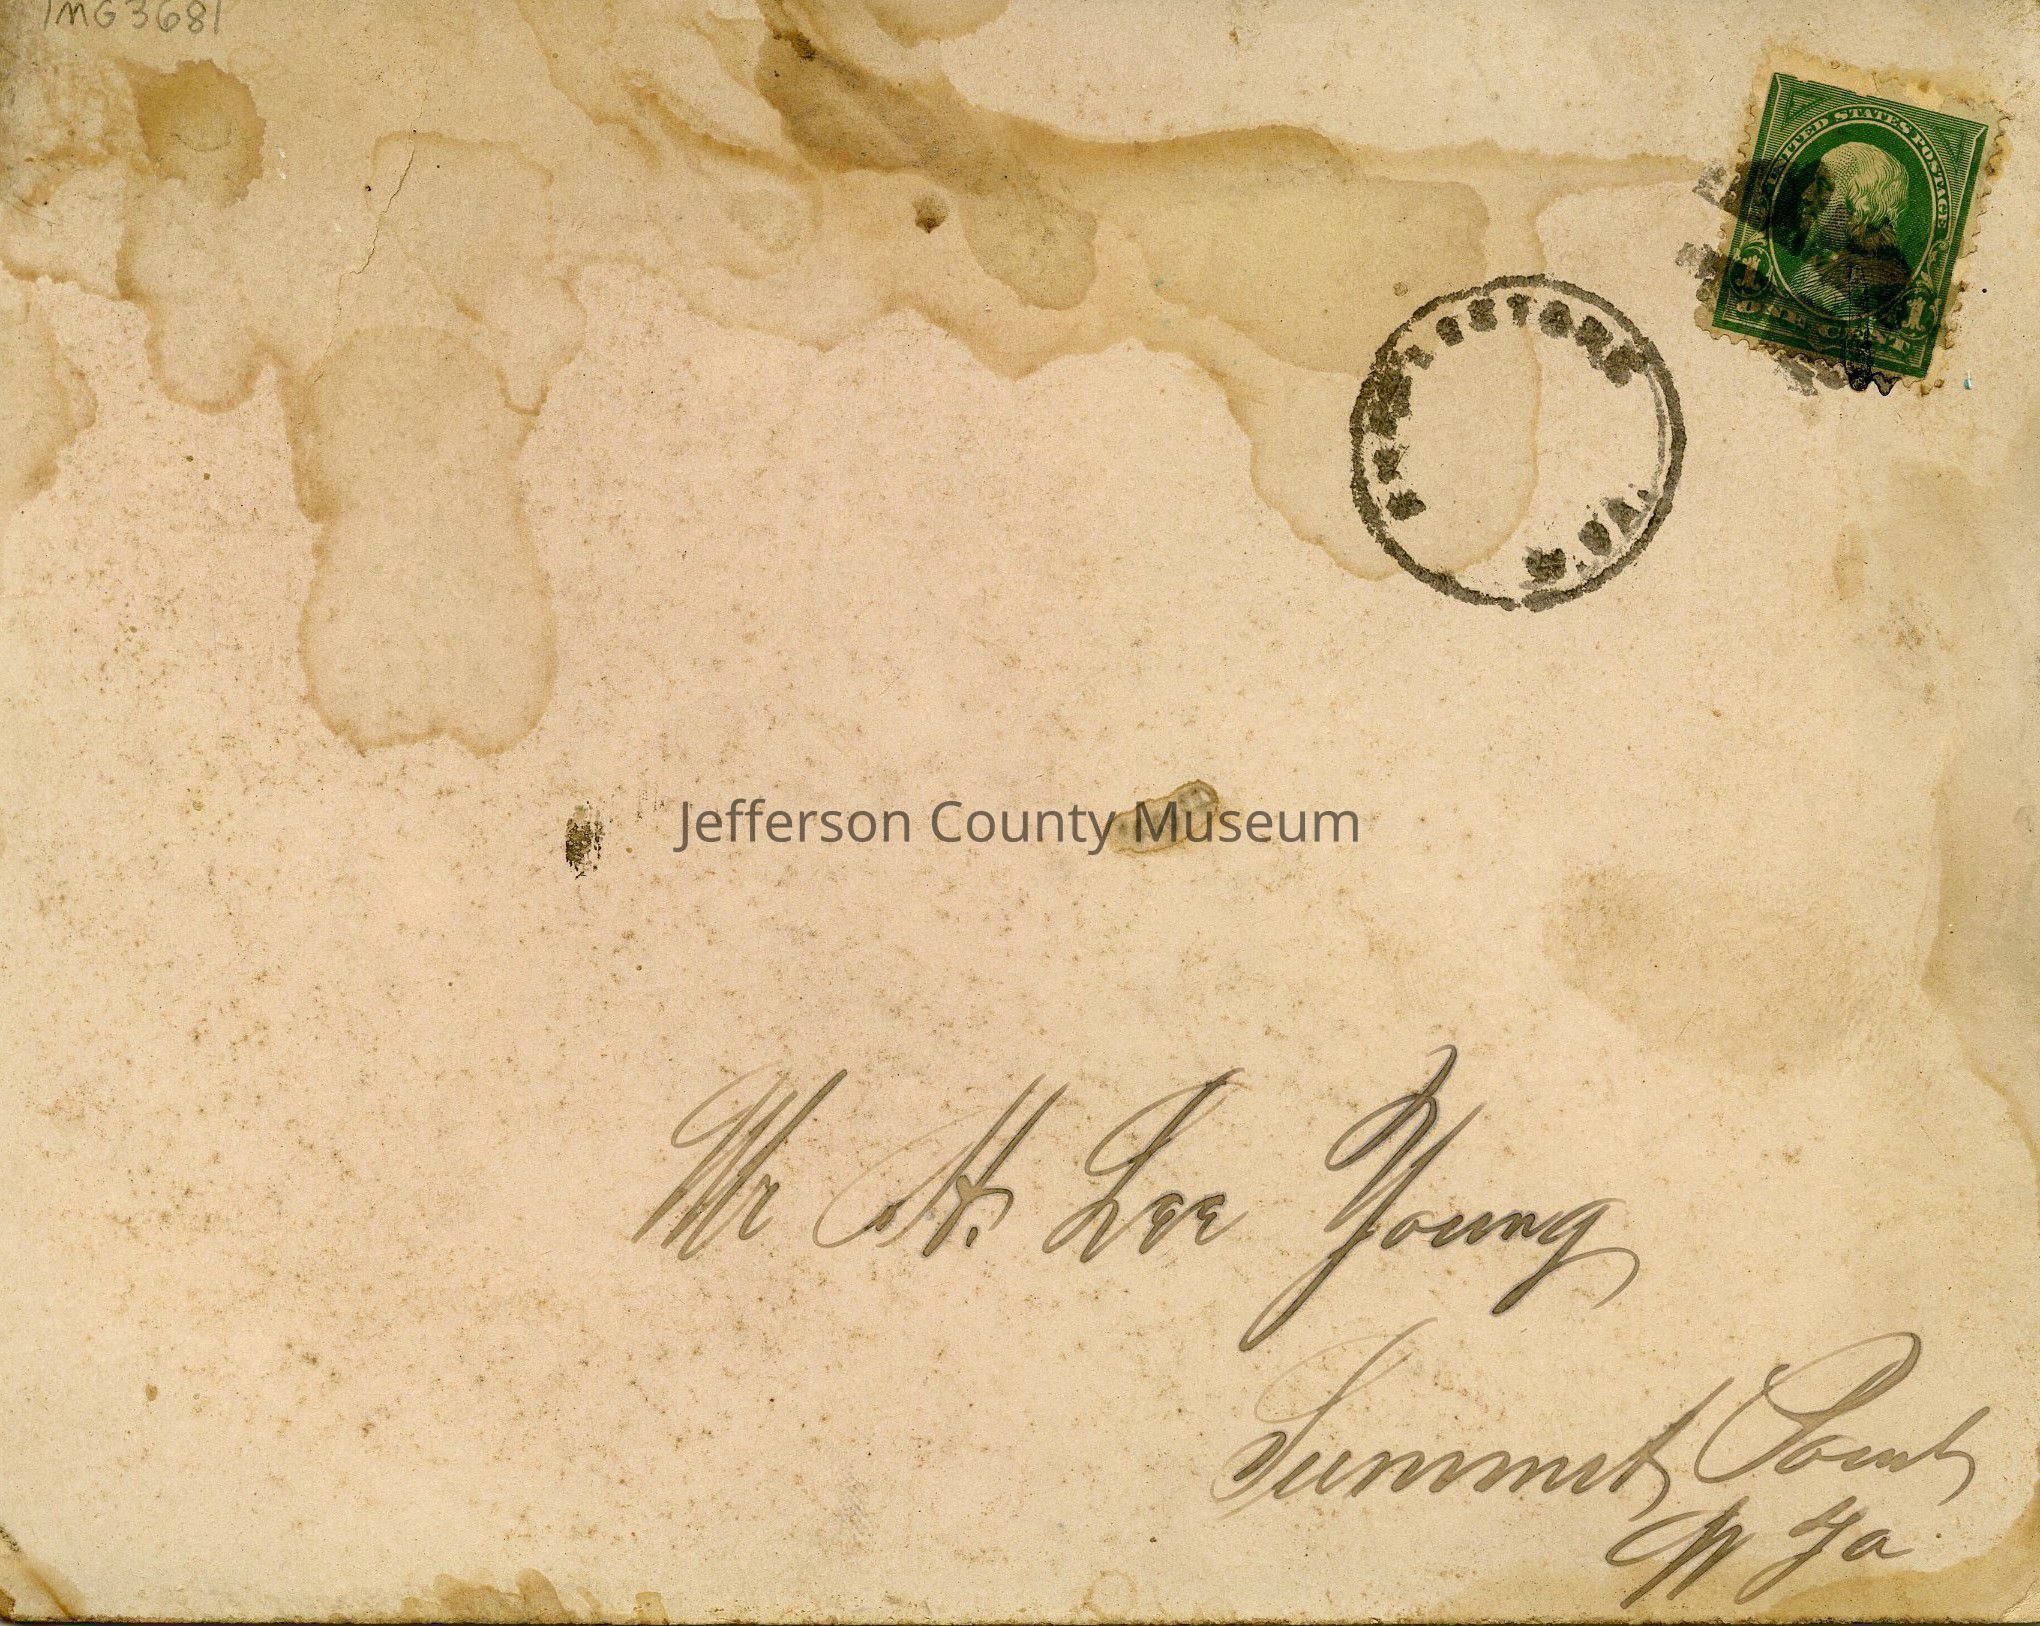 IMG3681
UNITED STATES POSTAGE
1 1
ONE CENT
W.VA.
Jefferson County Museum
Mr H. Lee Young
Summit Point
W Va